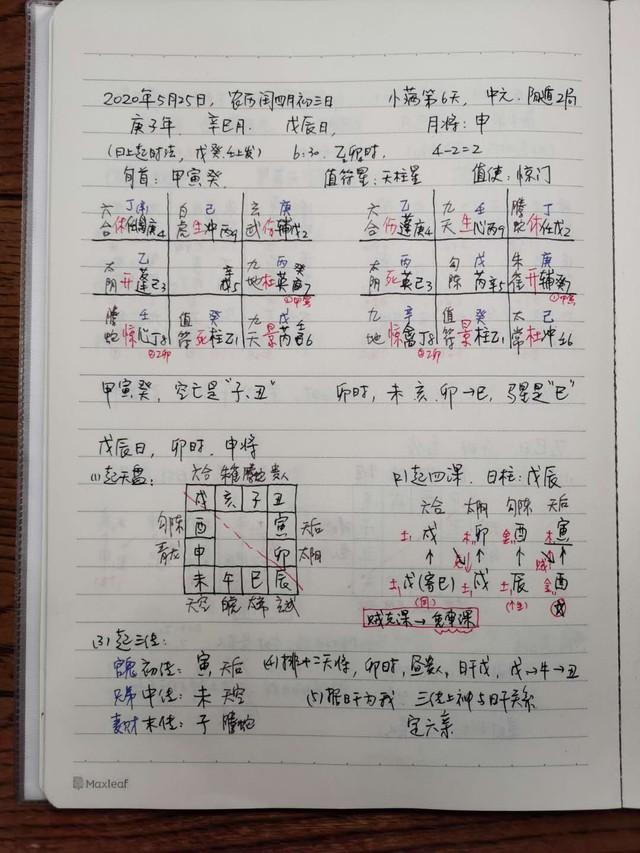 2020年5月25日，农历闰四月初三日 小满第6天，中元．阳遁2局
庚子年．辛巳月．戊辰日， 月将：申
(日上起时法，戊癸壬上发) 6:30．乙卯时． 4-2=2
旬首：甲寅癸． 值符星：天柱星 值使：惊门
六 丁 白 己 玄 庚 六 乙 九 壬 螣 丁
合 休 庚4 虎 生冲丙9 武 伤辅戊2 合 伤蓬庚4 天 生心丙9 蛇 休任戊2
太 乙 九 丙 癸 太 丙 勾 戊 朱 庚
阴 开蓬己3 辛5 地 杜英 7 阴 死英己3 陈 芮辛5 雀 开辅癸7
①甲寅 ①甲寅
螣 壬 值 癸 九 戊 九 辛 值 癸 太 己
蛇 惊心丁8 符 死柱乙1 天 景芮 6 地 惊禽丁8 符 景柱乙1 常 杜冲壬6
②乙卯 ②乙卯
甲寅癸，空亡是“子、丑” 卯时，未．亥．卯→巳，马星是“巳”
戊辰日，卯时．申将
(1)起天盘： 六合 朱雀 螣蛇 贵人 (2)起四课．日柱：戊辰
戌 亥 子 丑 六合 太阴 勾陈 天后
勾陈 酉 寅 天后 土戌 木卯 金酉 木寅
青龙 申 卯 太阴 ↑ ↑ ↑ 贼 ↑
未 午 巳 辰 土戊(寄巳) 土戌 土辰 金酉
天空 玄武
贼克课→
(3)起三传：
官鬼 初传：寅 天后 (4)排十二天将，卯时，昼贵人，日干戊，戊→牛→丑
兄弟 中传：未 天空 (5)据日干为我 三传上神与日干关系
妻财 末传：子 螣蛇 定六亲
Maxleaf